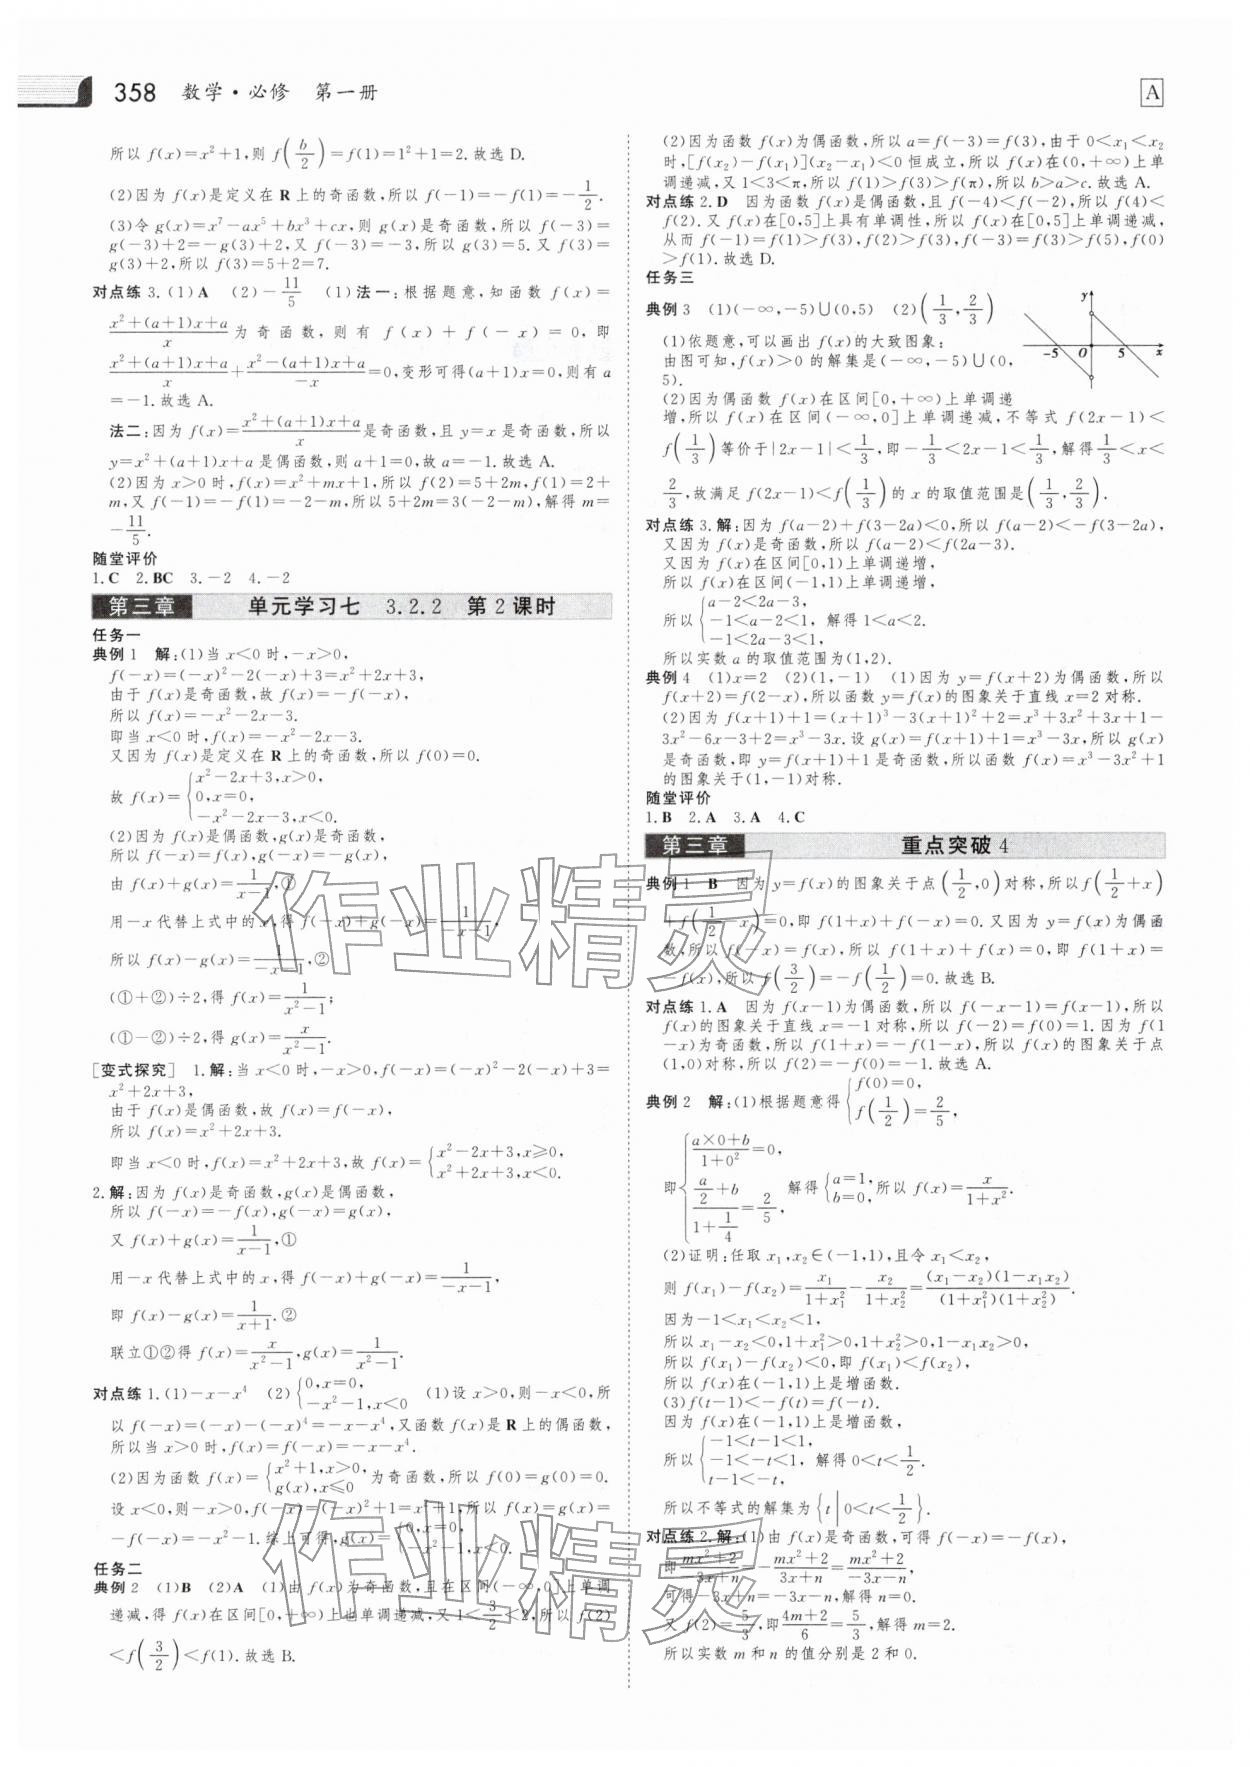 358 数学·必修 第一册
A
所以 f(x)=x²+1,则 f(b/2)=f(1)=1²+1=2.故选 D.
(2)因为 f(x)是定义在 R 上的奇函数,所以 f(-1)=-f(1)=-1/2.
(3)令 g(x)=x⁷-ax⁵+bx³+cx,则 g(x)是奇函数,所以 f(-3)=
g(-3)+2=-g(3)+2,又 f(-3)=-3,所以 g(3)=5.又 f(3)=
g(3)+2,所以 f(3)=5+2=7.
对点练 3.(1)A (2)-11/5 (1)法一:根据题意,知函数 f(x)=
(x²+(a+1)x+a)/x 为奇函数,则有 f(x)+f(-x)=0,即
(x²+(a+1)x+a)/x+(x²-(a+1)x+a)/(-x)=0,变形可得(a+1)x=0,则有 a
=-1.故选 A.
法二:因为 f(x)=(x²+(a+1)x+a)/x 是奇函数,且 y=x 是奇函数,所以
y=x²+(a+1)x+a 是偶函数,则 a+1=0,故 a=-1.故选 A.
(2)因为 x>0 时,f(x)=x²+mx+1,所以 f(2)=5+2m,f(1)=2+
m,又 f(-1)=-f(1)=-2-m,所以 5+2m=3(-2-m),解得 m=
-11/5.
随堂评价
1.C 2.BC 3.-2 4.-2
第三章 单元学习七 3.2.2 第 2 课时
任务一
典例 1 解:(1)当 x<0 时,-x>0,
f(-x)=(-x)²-2(-x)+3=x²+2x+3,
由于 f(x)是奇函数,故 f(x)=-f(-x),
所以 f(x)=-x²-2x-3.
即当 x<0 时,f(x)=-x²-2x-3.
又因为 f(x)是定义在 R 上的奇函数,所以 f(0)=0.
故 f(x)={x²-2x+3,x>0,
0,x=0,
-x²-2x-3,x<0.
(2)因为 f(x)是偶函数,g(x)是奇函数,
所以 f(-x)=f(x),g(-x)=-g(x),
由 f(x)+g(x)=1/(x-1),①
用-x 代替上式中的 x,得 f(-x)+g(-x)=1/(-x-1),
所以 f(x)-g(x)=1/(-x-1),②
(①+②)÷2,得 f(x)=1/(x²-1);
(①-②)÷2,得 g(x)=x/(x²-1).
[变式探究] 1.解:当 x<0 时,-x>0,f(-x)=(-x)²-2(-x)+3=
x²+2x+3,
由于 f(x)是偶函数,故 f(x)=f(-x),
所以 f(x)=x²+2x+3.
即当 x<0 时,f(x)=x²+2x+3,故 f(x)={x²-2x+3,x≥0,
x²+2x+3,x<0.
2.解:因为 f(x)是奇函数,g(x)是偶函数,
所以 f(-x)=-f(x),g(-x)=g(x),
又 f(x)+g(x)=1/(x-1),①
用-x 代替上式中的 x,得 f(-x)+g(-x)=1/(-x-1),
即 f(x)-g(x)=1/(x+1).②
联立①②得 f(x)=x/(x²-1),g(x)=1/(x²-1).
对点练 1.(1)-x-x⁴ (2){0,x=0,
-x²-1,x<0 (1)设 x>0,则-x<0,所
以 f(-x)=(-x)-(-x)⁴=-x-x⁴,又函数 f(x)是 R 上的偶函数,
所以当 x>0 时,f(x)=f(-x)=-x-x⁴.
(2)因为函数 f(x)={x²+1,x>0,
g(x),x≤0 为奇函数,所以 f(0)=g(0)=0.
设 x<0,则-x>0,f(-x)=(-x)²+1=x²+1,所以 f(x)=g(x)=
-f(-x)=-x²-1.综上可得,g(x)={0,x=0,
-x²-1,x<0.
任务二
典例 2 (1)B (2)A (1)由 f(x)为奇函数,且在区间(-∞,0]上单调
递减,得 f(x)在区间[0,+∞)上也单调递减,又 1<3/2<2,所以 f(2)
<f(3/2)<f(1).故选 B.
(2)因为函数 f(x)为偶函数,所以 a=f(-3)=f(3),由于 0<x₁<x₂
时,[f(x₂)-f(x₁)](x₂-x₁)<0 恒成立,所以 f(x)在(0,+∞)上单
调递减,又 1<3<π,所以 f(1)>f(3)>f(π),所以 b>a>c.故选 A.
对点练 2.D 因为函数 f(x)是偶函数,且 f(-4)<f(-2),所以 f(4)<
f(2).又 f(x)在[0,5]上具有单调性,所以 f(x)在[0,5]上单调递减,
从而 f(-1)=f(1)>f(3),f(2)>f(3),f(-3)=f(3)>f(5),f(0)
>f(1).故选 D.
任务三
典例 3 (1)(-∞,-5)∪(0,5) (2)(1/3,2/3)
(1)依题意,可以画出 f(x)的大致图象:
由图可知,f(x)>0 的解集是(-∞,-5)∪(0,
5).
y
-5 O 5 x
(2)因为偶函数 f(x)在区间[0,+∞)上单调递
增,所以 f(x)在区间(-∞,0]上单调递减,不等式 f(2x-1)<
f(1/3)等价于|2x-1|<1/3,即-1/3<2x-1<1/3,解得1/3<x<
2/3,故满足 f(2x-1)<f(1/3)的 x 的取值范围是(1/3,2/3).
对点练 3.解:因为 f(a-2)+f(3-2a)<0,所以 f(a-2)<-f(3-2a),
又因为 f(x)是奇函数,所以 f(a-2)<f(2a-3).
又因为 f(x)在区间[0,1)上单调递增,
所以 f(x)在区间(-1,1)上单调递增,
所以{a-2<2a-3,
-1<a-2<1, 解得 1<a<2.
-1<2a-3<1,
所以实数 a 的取值范围为(1,2).
典例 4 (1)x=2 (2)(1,-1) (1)因为 y=f(x+2)为偶函数,所以
f(x+2)=f(2-x),所以函数 y=f(x)的图象关于直线 x=2 对称.
(2)因为 f(x+1)+1=(x+1)³-3(x+1)²+2=x³+3x²+3x+1-
3x²-6x-3+2=x³-3x.设 g(x)=f(x+1)+1=x³-3x,所以 g(x)
是奇函数,即 y=f(x+1)+1 是奇函数,所以函数 f(x)=x³-3x²+1
的图象关于(1,-1)对称.
随堂评价
1.B 2.A 3.A 4.C
第三章 重点突破 4
典例 1 B 因为 y=f(x)的图象关于点(1/2,0)对称,所以 f(1/2+x)
+f(1/2-x)=0,即 f(1+x)+f(-x)=0.又因为 y=f(x)为偶函
数,所以 f(-x)=f(x),所以 f(1+x)+f(x)=0,即 f(1+x)=
-f(x),所以 f(3/2)=-f(1/2)=0.故选 B.
对点练 1.A 因为 f(x-1)为偶函数,所以 f(-x-1)=f(x-1),所以
f(x)的图象关于直线 x=-1 对称,所以 f(-2)=f(0)=1.因为 f(1
-x)为奇函数,所以 f(1+x)=-f(1-x),所以 f(x)的图象关于点
(1,0)对称,所以 f(2)=-f(0)=-1.故选 A.
典例 2 解:(1)根据题意得{f(0)=0,
f(1/2)=2/5,
即{(a×0+b)/(1+0²)=0,
(a/2+b)/(1+1/4)=2/5, 解得{a=1,
b=0,所以 f(x)=x/(1+x²).
(2)证明:任取 x₁,x₂∈(-1,1),且令 x₁<x₂,
则 f(x₁)-f(x₂)=x₁/(1+x₁²)-x₂/(1+x₂²)=(x₁-x₂)(1-x₁x₂)/((1+x₁²)(1+x₂²)).
因为-1<x₁<x₂<1,
所以 x₁-x₂<0,1+x₁²>0,1+x₂²>0,1-x₁x₂>0,
所以 f(x₁)-f(x₂)<0,即 f(x₁)<f(x₂),
所以 f(x)在(-1,1)上是增函数.
(3)f(t-1)<-f(t)=f(-t).
因为 f(x)在(-1,1)上是增函数,
所以{-1<t-1<1,
-1<-t<1, 解得 0<t<1/2.
t-1<-t,
所以不等式的解集为{t|0<t<1/2}.
对点练 2.解:(1)由 f(x)是奇函数,可得 f(-x)=-f(x),
即(mx²+2)/(-3x+n)=-(mx²+2)/(3x+n)=(mx²+2)/(-3x-n),
可得-3x+n=-3x-n,解得 n=0.
又 f(2)=5/3,即(4m+2)/6=5/3,解得 m=2.
所以实数 m 和 n 的值分别是 2 和 0.
作业精灵
作业精灵